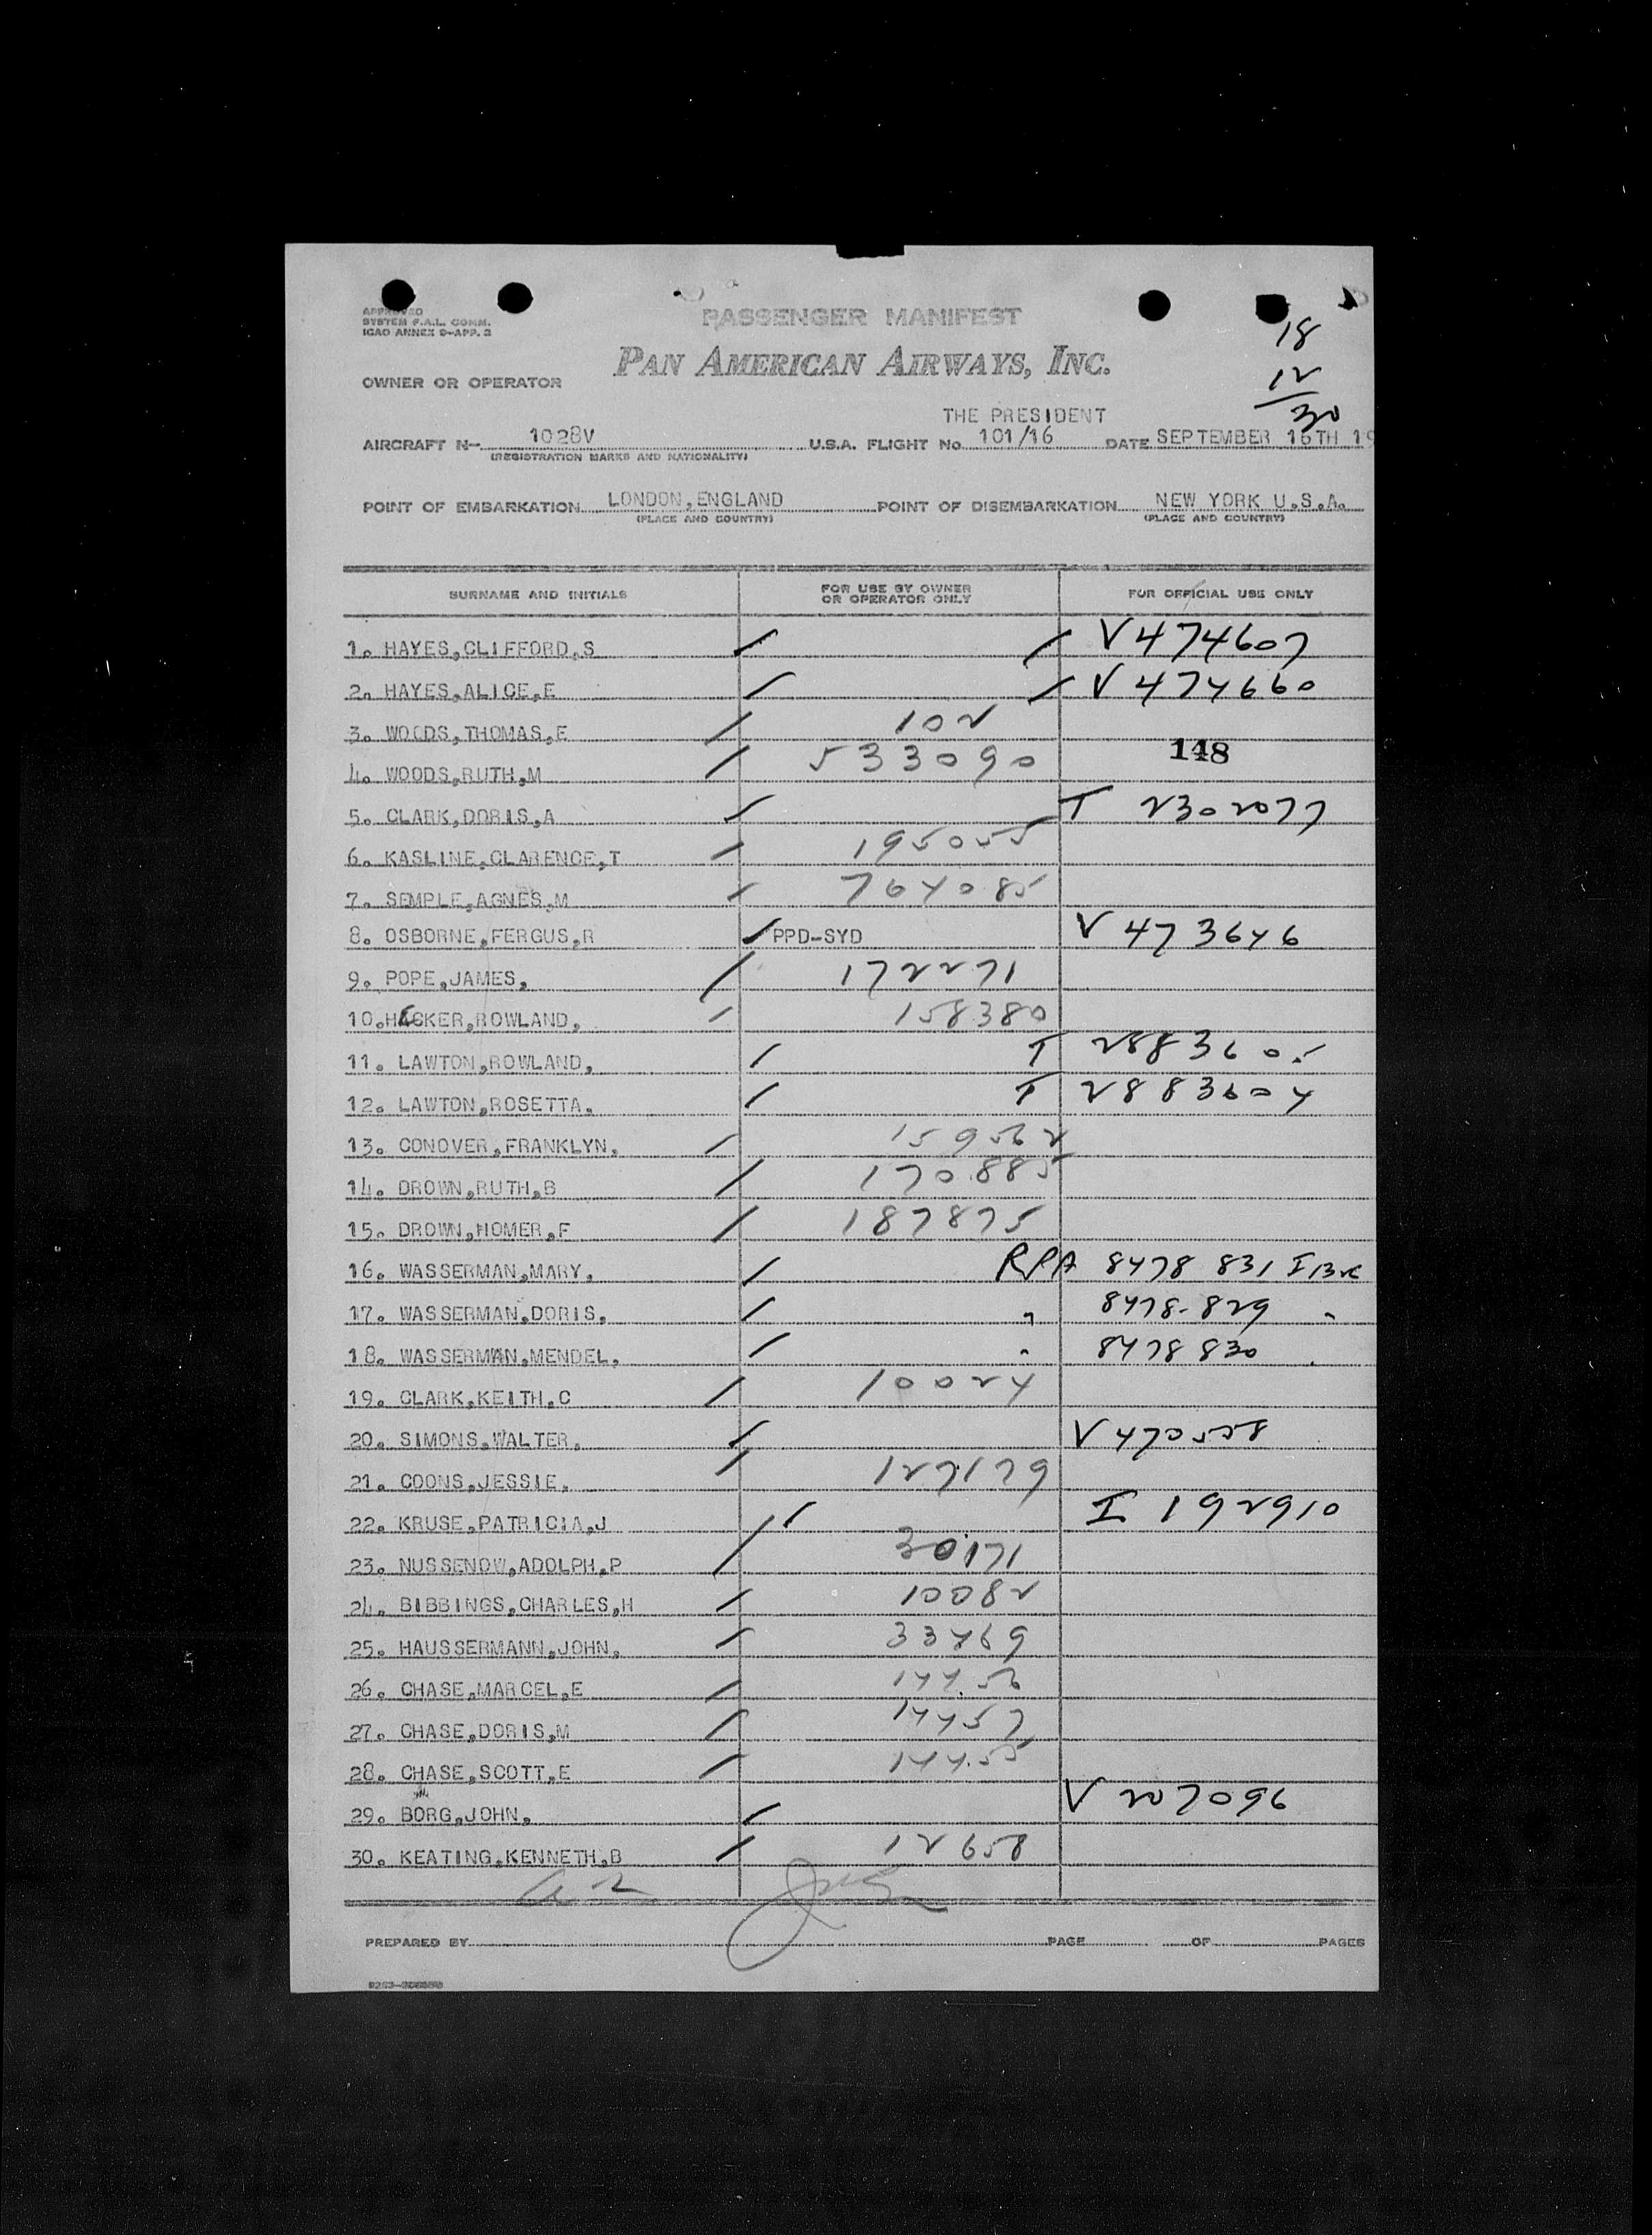 APPROVED
SYSTEM F.A.L. COMM.
ICAO ANNEX 9-APP. 2
PASSENGER MANIFEST
18
PAN AMERICAN AIRWAYS, INC.
OWNER OR OPERATOR
12
30
THE PRESIDENT
AIRCRAFT N- 1028V U.S.A. FLIGHT No. 101/16 DATE SEPTEMBER 16TH 19
(REGISTRATION MARKS AND NATIONALITY)
POINT OF EMBARKATION LONDON,ENGLAND POINT OF DISEMBARKATION NEW YORK U.S.A.
(PLACE AND COUNTRY) (PLACE AND COUNTRY)
SURNAME AND INITIALS FOR USE BY OWNER OR OPERATOR ONLY FOR OFFICIAL USE ONLY
1. HAYES,CLIFFORD,S V 474607
2. HAYES,ALICE,E V 474660
3. WOODS,THOMAS,E 102
4. WOODS,RUTH,M 533090 148
5. CLARK,DORIS,A T 2302077
6. KASLINE,CLARENCE,T 195055
7. SEMPLE,AGNES,M 764085
8. OSBORNE,FERGUS,R PPD-SYD V 473646
9. POPE,JAMES, 172271
10. HACKER,ROWLAND, 158380
11. LAWTON,ROWLAND, T 2883605
12. LAWTON,ROSETTA. T 2883604
13. CONOVER,FRANKLYN. 159562
14. DROWN,RUTH,B 170885
15. DROWN,HOMER,F 187875
16. WASSERMAN,MARY. RPA 8478 831
17. WASSERMAN,DORIS. " 8478-829 "
18. WASSERMAN,MENDEL. " 8478 830 "
19. CLARK,KEITH,C 10024
20. SIMONS,WALTER. V 470508
21. COONS,JESSIE. 127179
22. KRUSE,PATRICIA,J I 192910
23. NUSSENOW,ADOLPH,P 30171
24. BIBBINGS,CHARLES,H 10082
25. HAUSSERMANN,JOHN. 33469
26. CHASE,MARCEL,E 14456
27. CHASE,DORIS,M 14457
28. CHASE,SCOTT,E 14455
29. BORG,JOHN. V 207096
30. KEATING,KENNETH,B 12658
PREPARED BY PAGE OF PAGES